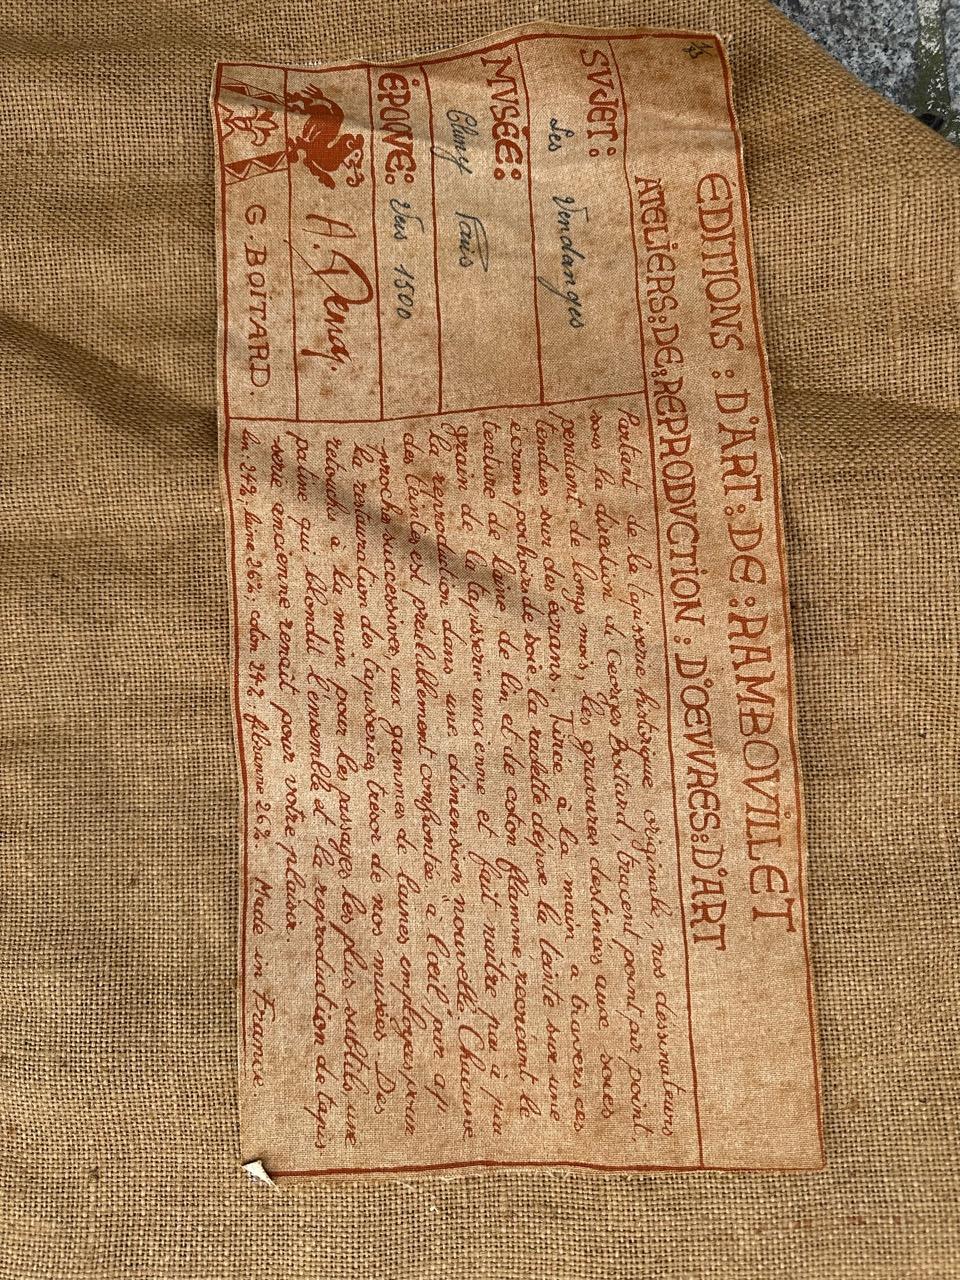 EDITIONS : D'ART : DE : RAMBOVILLET
ATELIERS : DE : REPRODVCTION : D'OEVVRES : D'ART
SVJET :
Les Vendanges
MVSÉE :
Cluny Paris
ÉPOQVE : Vers 1500
G. BOITARD.
Partant de la tapisserie historique originale, nos dessinateurs
sous la direction de Georges Boitard, tracent point par point,
pendant de longs mois, les gravures destinées aux soies
tendues sur des écrans. Tirée à la main, à travers ces
écrans pochoirs de soie, la raclette dépose la teinte sur une
texture de laine, de lin et de coton flammé, recréant le
grain de la tapisserie ancienne et fait naître peu à peu
la reproduction dans une dimension nouvelle. Chacune
des teintes est préalablement confrontée, à l'oeil, par ap
proche successives, aux gammes de laines employées pour
la restauration des tapisseries, trésor de nos musées. Des
retouches à la main pour les passages les plus subtils, une
patine qui blondit l'ensemble et la reproduction de tapis
serie ancienne renaît pour votre plaisir.
lin 24%, laine 26%, coton 24%, fibranne 26%. Made in France